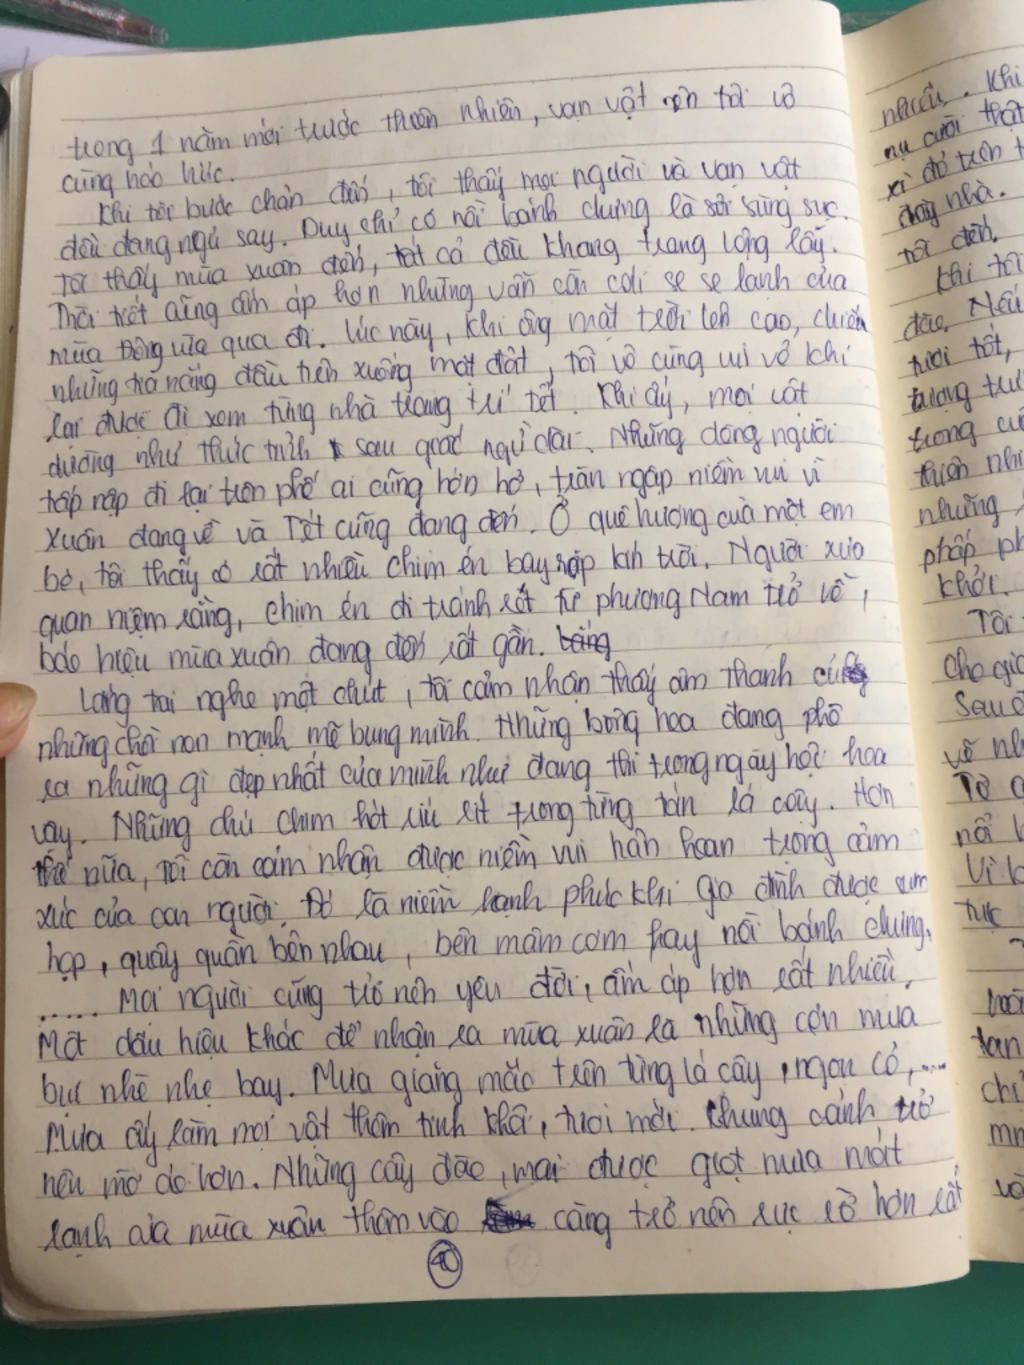 trong 1 năm mới trước thiên nhiên, vạn vật nên tôi vô
cùng háo hức.
Khi tôi bước chân đến, tôi thấy mọi người và vạn vật
đều đang ngủ say. Duy chỉ có nồi bánh chưng là sôi sùng sục.
Tôi thấy mùa xuân đến, tất cả đều khang trang lộng lẫy.
Thời tiết cũng ấm áp hơn những vẫn còn cái se se lạnh của
mùa đông vừa qua đi. Lúc này, khi ông mặt trời lên cao, chiếu
những tia nắng đầu tiên xuống mặt đất, tôi vô cùng vui vẻ khi
lại được đi xem từng nhà trang trí tết. Khi ấy, mọi vật
dường như thức tỉnh sau giấc ngủ dài. Những dòng người
tấp nập đi lại trên phố ai cũng hớn hở, tràn ngập niềm vui vì
xuân đang về và Tết cũng đang đến. Ở quê hương của một em
bé, tôi thấy có rất nhiều chim én bay rợp kín trời. Người xưa
quan niệm rằng, chim én di tránh rét từ phương Nam trở về,
báo hiệu mùa xuân đang đến rất gần.
Lắng tai nghe một chút, tôi cảm nhận thấy âm thanh
những chồi non mạnh mẽ bung mình. Những bông hoa đang phô
ra những gì đẹp nhất của mình như đang thi trong ngày hội hoa
vậy. Những chú chim hót ríu rít trong từng tán lá cây. Hơn
thế nữa, tôi còn cảm nhận được niềm vui hân hoan trong cảm
xúc của con người. Đó là niềm hạnh phúc khi gia đình được sum
họp, quây quần bên nhau, bên mâm cơm hay nồi bánh chưng,
...... Mọi người cũng trở nên yêu đời, ấm áp hơn rất nhiều.
Một dấu hiệu khác để nhận ra mùa xuân là những cơn mưa
bụi nhè nhẹ bay. Mưa giăng mắc trên từng lá cây, ngọn cỏ,....
Mưa ấy làm mọi vật thêm tinh khôi, tươi mới. Khung cảnh trở
nên mờ ảo hơn. Những cây đào, mai được giọt mưa mát
lạnh của mùa xuân thấm vào càng trở nên rực rỡ hơn rất
40
nhiều. Khi
nụ cười thật
xì đỏ trên t
tôi đến.
Khi tôi
đào. Nếu
tươi tốt,
tượng trư
trong cu
thiên nhi
những
phấp ph
khởi.
Tôi
cho gia
Sau đ
nổi
Vì
tục
chỉ